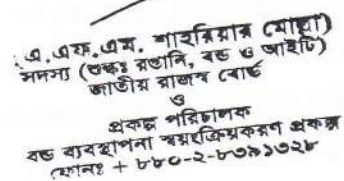 (এ.এফ.এম. শাহরিয়ার মোল্লা)
সদস্য (শুল্কঃ রপ্তানি, বন্ড ও আইটি)
জাতীয় রাজস্ব বোর্ড
ও
প্রকল্প পরিচালক
বন্ড ব্যবস্থাপনা স্বয়ংক্রিয়করণ প্রকল্প
ফোনঃ + ৮৮০-২-৮৩৯১৭২৮